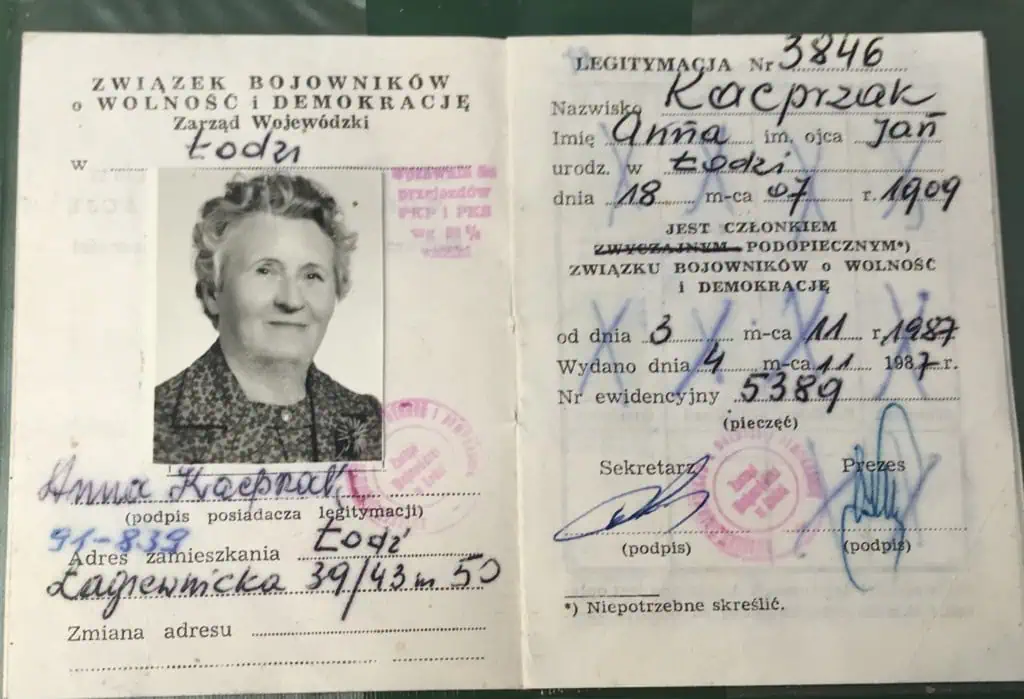 ZWIĄZEK BOJOWNIKÓW
o WOLNOŚĆ i DEMOKRACJĘ
Zarząd Wojewódzki
w Łodzi
przejazdów
PKP i PKS
Anna Kacprzak
(podpis posiadacza legitymacji)
91-839
Adres zamieszkania Łodź
Łagiewnicka 39/43 m 50
Zmiana adresu
LEGITYMACJA Nr 3846
Nazwisko Kacprzak
Imię Anna im. ojca Jan
urodz. w Łodzi
dnia 18 m-ca 07 r. 1909
JEST CZŁONKIEM
ZWYCZAJNYM PODOPIECZNYM*)
ZWIĄZKU BOJOWNIKÓW o WOLNOŚĆ
i DEMOKRACJĘ
od dnia 3 m-ca 11 r. 1987
Wydano dnia 4 m-ca 11 1987 r.
Nr ewidencyjny 5389
(pieczęć)
Sekretarz Prezes
(podpis) (podpis)
*) Niepotrzebne skreślić.